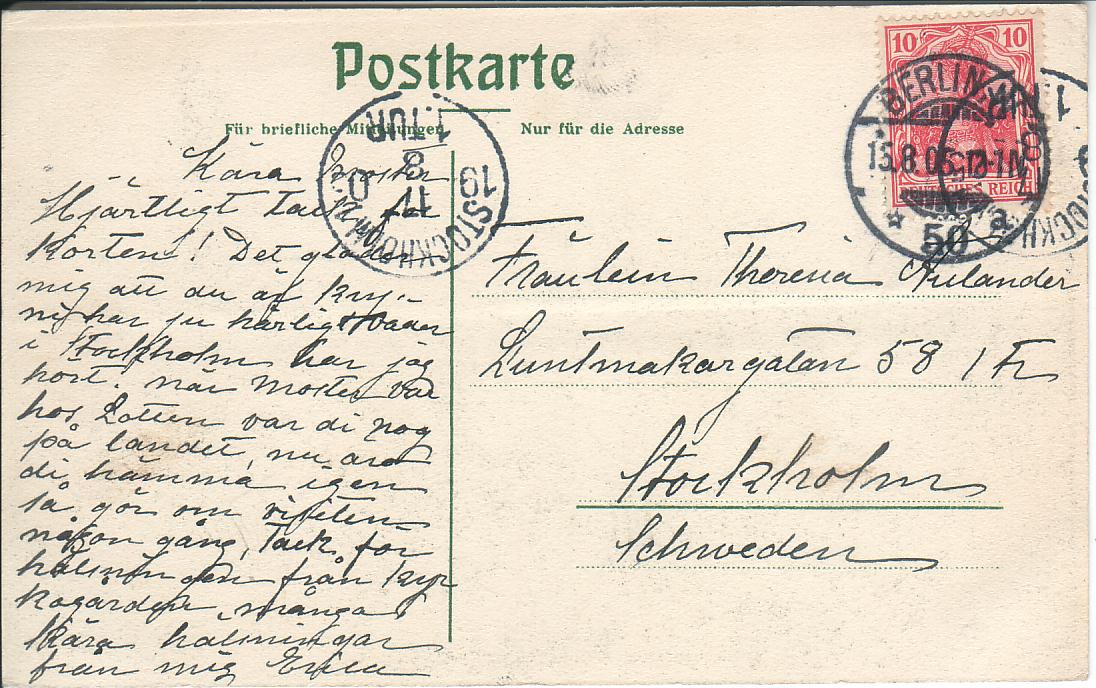 Postkarte
Für briefliche Mitteilungen
Nur für die Adresse
10 10
DEUTSCHES REICH
BERLIN
15.8.05.12-1N
* 50 a
STOCKHOLM
1.TUR
17 8
19 0
1.TUR
STOCKH
Kära Moster
Hjärtligt tack för
korten! Det gläder
mig att du är kry,
ni har ju härligt väder
i Stockholm har jag
hört. när Moster var
hos Lotten var di nog
på landet, nu äro
di hämma igen
så gör om visiten
någon gång, Tack för
hälsningen från kyr
kogården, många
kära hälsningar
från mig Erica
Fräulein Theresia
Luntmakargatan 58 1
Stockholm
Schweden